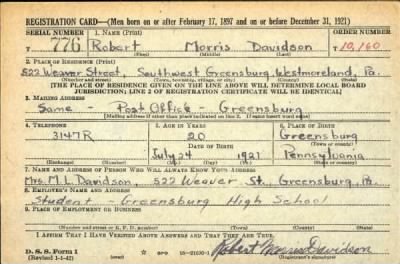 REGISTRATION CARD—(Men born on or after February 17, 1897 and on or before December 31, 1921)
SERIAL NUMBER 1. NAME (Print) ORDER NUMBER
776 Robert Morris Davidson 10,160
(First) (Middle) (Last)
2. PLACE OF RESIDENCE (Print)
522 Weaver Street, Southwest Greensburg, Westmoreland, Pa.
(Number and street) (Town, township, village, or city) (County) (State)
[THE PLACE OF RESIDENCE GIVEN ON THE LINE ABOVE WILL DETERMINE LOCAL BOARD
JURISDICTION; LINE 2 OF REGISTRATION CERTIFICATE WILL BE IDENTICAL]
3. MAILING ADDRESS
Same - Post Office - Greensburg
[Mailing address if other than place indicated on line 2. If same insert word same]
4. TELEPHONE 5. AGE IN YEARS 6. PLACE OF BIRTH
3147R 20 Greensburg
DATE OF BIRTH (Town or county)
July 24 1921 Pennsylvania
(Exchange) (Number) (Mo.) (Day) (Yr.) (State or country)
7. NAME AND ADDRESS OF PERSON WHO WILL ALWAYS KNOW YOUR ADDRESS
Mrs. M. L. Davidson, 522 Weaver St., Greensburg, Pa.
8. EMPLOYER'S NAME AND ADDRESS
Student - Greensburg High School
9. PLACE OF EMPLOYMENT OR BUSINESS
(Number and street or R. F. D. number) (Town) (County) (State)
I AFFIRM THAT I HAVE VERIFIED ABOVE ANSWERS AND THAT THEY ARE TRUE.
D. S. S. Form 1 GPO Robert Morris Davidson
(Revised 1-1-42) (Registrant's signature)